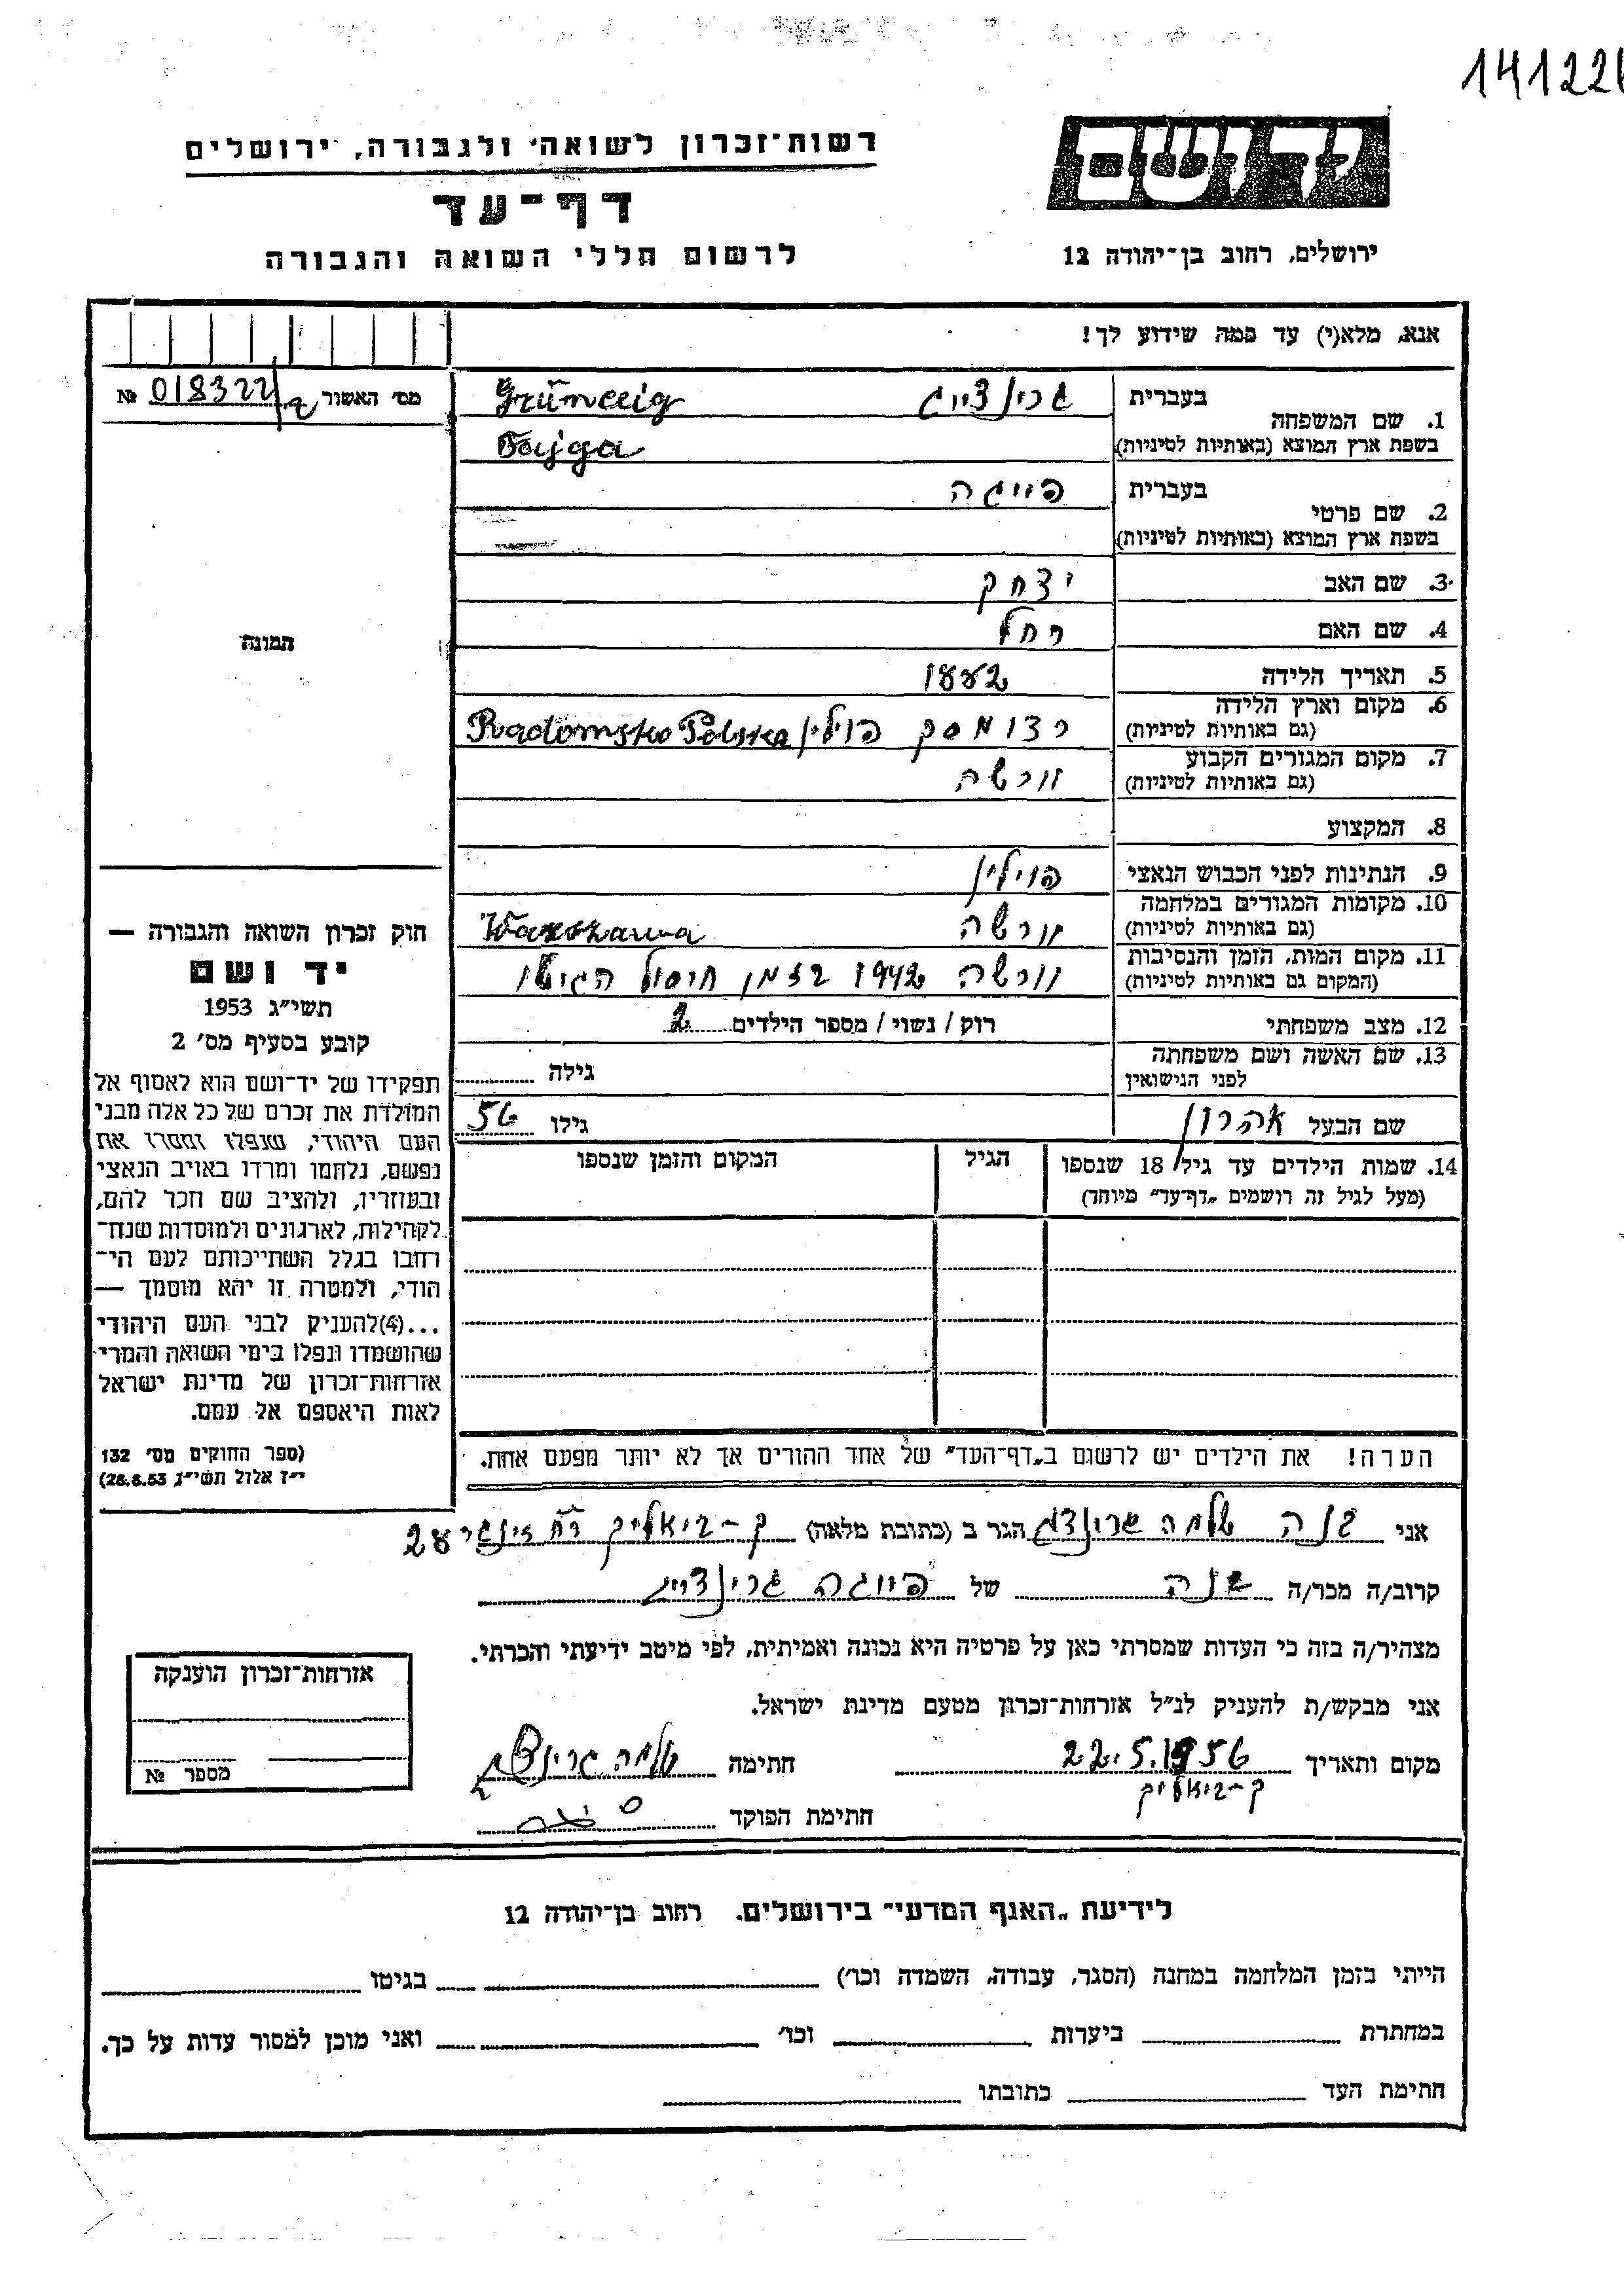 141226
רשות־זכרון לשואה ולגבורה, ירושלים
יד ושם
דף־עד
לרשום חללי השואה והגבורה
ירושלים, רחוב בן־יהודה 12
אנא, מלא(י) עד כמה שידוע לך!
מס׳ האשור № 018322/2
1. שם המשפחה בעברית גרינצייג Grünceig
בשפת ארץ המוצא (באותיות לטיניות) Fajga
2. שם פרטי בעברית פייגה
בשפת ארץ המוצא (באותיות לטיניות)
3. שם האב יצחק
4. שם האם רחל
תמונה
5. תאריך הלידה 1882
6. מקום וארץ הלידה רדומסק פוילין Radomsko Polska
(גם באותיות לטיניות)
7. מקום המגורים הקבוע וורשה
(גם באותיות לטיניות)
8. המקצוע
9. הנתינות לפני הכבוש הנאצי פוילין
10. מקומות המגורים במלחמה וורשה Warszawa
(גם באותיות לטיניות)
11. מקום המות, הזמן והנסיבות וורשה 1942 בזמן חיסול הגיטו
(המקום גם באותיות לטיניות)
12. מצב משפחתי רוק / נשוי / מספר הילדים 2
13. שם האשה ושם משפחתה גילה
לפני הנישואין
שם הבעל אהרון גילו 56
14. שמות הילדים עד גיל 18 שנספו הגיל המקום והזמן שנספו
(מעל לגיל זה רושמים „דף־עד” מיוחד)
חוק זכרון השואה והגבורה —
יד ושם
תשי״ג 1953
קובע בסעיף מס׳ 2
תפקידו של יד־ושם הוא לאסוף אל
המולדת את זכרם של כל אלה מבני
העם היהודי, שנפלו ומסרו את
נפשם, נלחמו ומרדו באויב הנאצי
ובעוזריו, ולהציב שם וזכר להם,
לקהילות, לארגונים ולמוסדות שנח־
רחבו בגלל השתייכותם לעם הי־
הודי, ולמטרה זו יהא מוסמך —
...(4)להעניק לבני העם היהודי
שהושמדו ונפלו בימי השואה והמרי
אזרחות־זכרון של מדינת ישראל
לאות היאספם אל עמם.
(ספר החוקים מס׳ 132
י״ז אלול תשי״ג, 28.8.53)
הערה! את הילדים יש לרשום ב„דף־העד” של אחד ההורים אך לא יותר מפעם אחת.
אני שלמה גרינצייג הגר ב (כתובת מלאה) ק-ביאליק 28
קרוב/ה מכר/ה של פייגה גרינצייג
מצהיר/ה בזה כי העדות שמסרתי כאן על פרטיה היא נכונה ואמיתית, לפי מיטב ידיעתי והכרתי.
אני מבקש/ת להעניק לנ״ל אזרחות־זכרון מטעם מדינת ישראל.
מקום ותאריך 22.5.1956 חתימה שלמה גרינצייג
ק-ביאליק
חתימת הפוקד
אזרחות־זכרון הוענקה
מספר №
לידיעת „האגף המדעי” בירושלים. רחוב בן־יהודה 12
הייתי בזמן המלחמה במחנה (הסגר, עבודה, השמדה וכו׳) בגיטו
במחתרת ביערות וכו׳ ואני מוכן למסור עדות על כך.
חתימת העד כתובתו